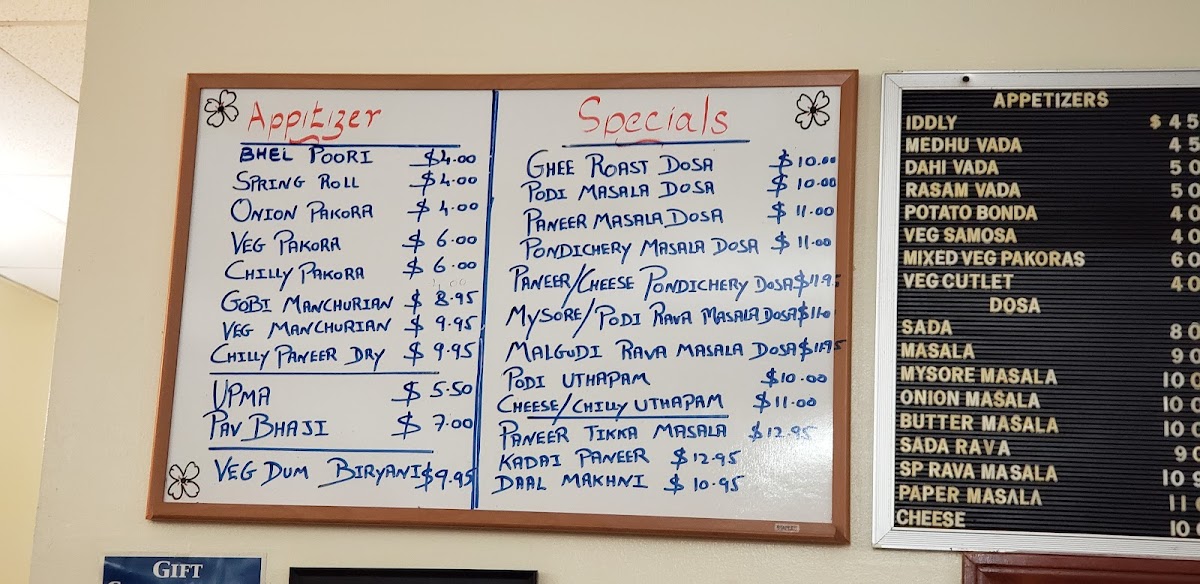 Appitizer
BHEL POORI $4.00
SPRING ROLL $4.00
ONION PAKORA $4.00
VEG PAKORA $6.00
CHILLY PAKORA $6.00
GOBI MANCHURIAN $8.95
VEG MANCHURIAN $9.95
CHILLY PANEER DRY $9.95
UPMA $5.50
PAV BHAJI $7.00
VEG DUM BIRYANI $9.95
Specials
GHEE ROAST DOSA $10.00
PODI MASALA DOSA $10.00
PANEER MASALA DOSA $11.00
PONDICHERY MASALA DOSA $11.00
PANEER/CHEESE PONDICHERY DOSA $11.95
MYSORE/PODI RAVA MASALA DOSA
MALGUDI RAVA MASALA DOSA $11.95
PODI UTHAPAM $10.00
CHEESE/CHILLY UTHAPAM $11.00
PANEER TIKKA MASALA $12.95
KADAI PANEER $12.95
DAAL MAKHNI $10.95
APPETIZERS
IDDLY $ 4 5
MEDHU VADA 4 5
DAHI VADA 5 0
RASAM VADA 5 0
POTATO BONDA 4 0
VEG SAMOSA 4 0
MIXED VEG PAKORAS 6 0
VEG CUTLET 4 0
DOSA
SADA 8 0
MASALA 9 0
MYSORE MASALA 10 0
ONION MASALA 10 0
BUTTER MASALA 10 0
SADA RAVA 9 0
SP RAVA MASALA 10 9
PAPER MASALA 11
CHEESE 10
GIFT